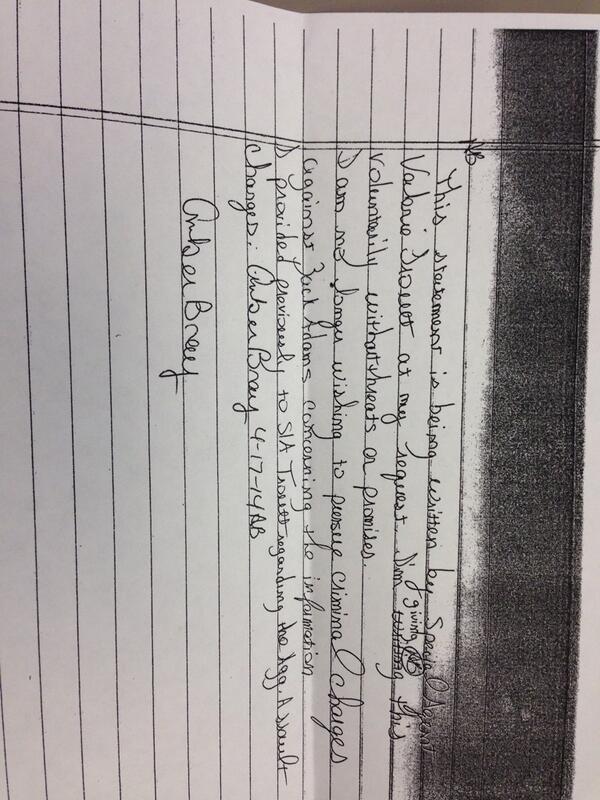 AB
This statement is being written by Special Agent
Valerie Trout at my request. I'm writing giving AB this
voluntarily without threats or promises.
I am no longer wishing to pursue criminal charges
against Zach Adams concerning the information
I provided previously to S/A Trout regarding the Agg. Assault
charges. Amber Bray 4-17-14 AB
Amber Bray